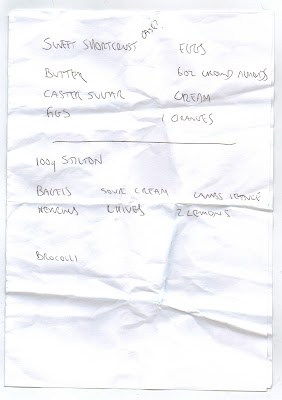 SWEET SHORTCRUST CASE? EGGS
BUTTER 6oz GROUND ALMONDS
CASTER SUGAR CREAM
FIGS 1 ORANGES
100g STILTON
BAGELS SOUR CREAM LAMBS LETTUCE
HERRINGS CHIVES 2 LEMONS
BROCOLLI